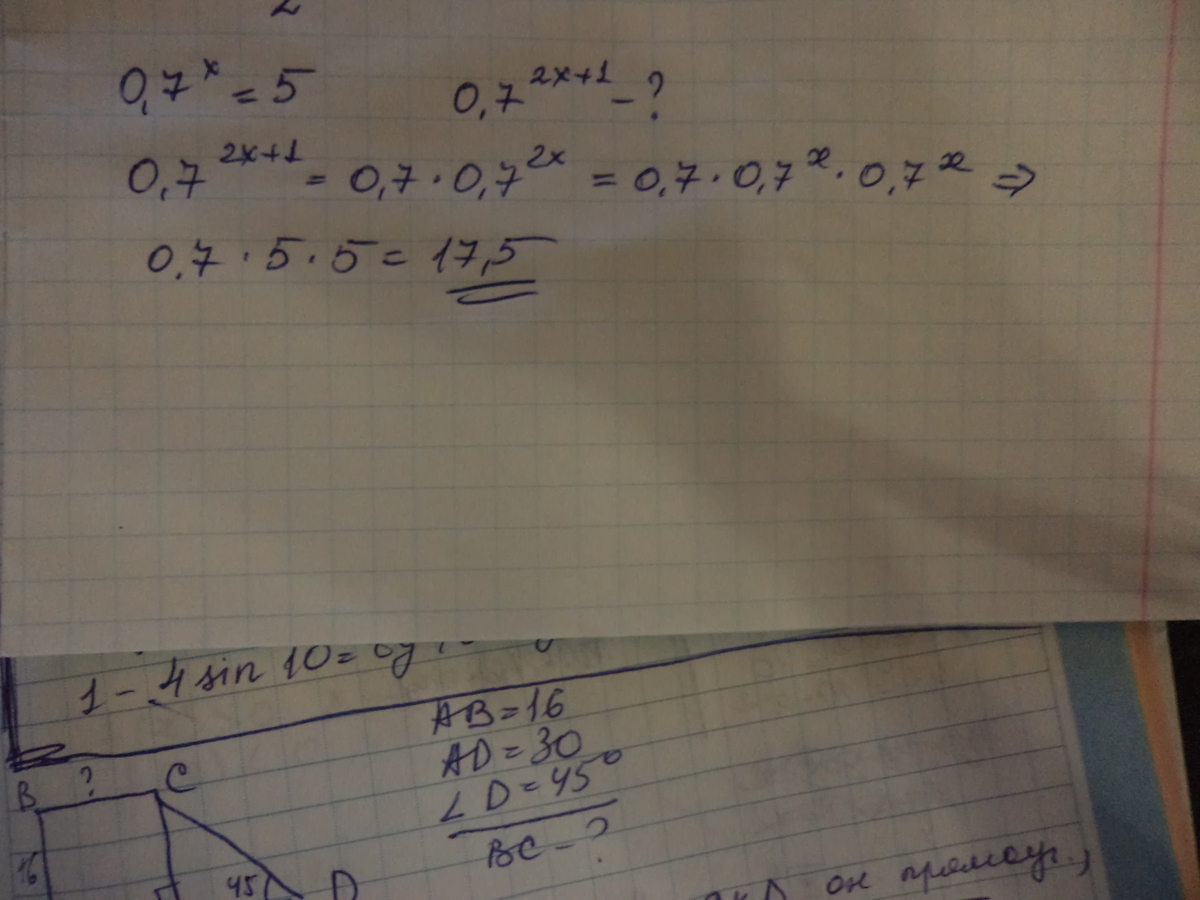 0,7^x = 5 0,7^{2x+1} - ?
0,7^{2x+1} = 0,7 · 0,7^{2x} = 0,7 · 0,7^x · 0,7^x ⇒
0,7 · 5 · 5 = 17,5
1 - 4 sin 10 =
AB = 16
AD = 30
∠D = 45°
BC - ?
B ? C
16
45 D
он прямоуг.,